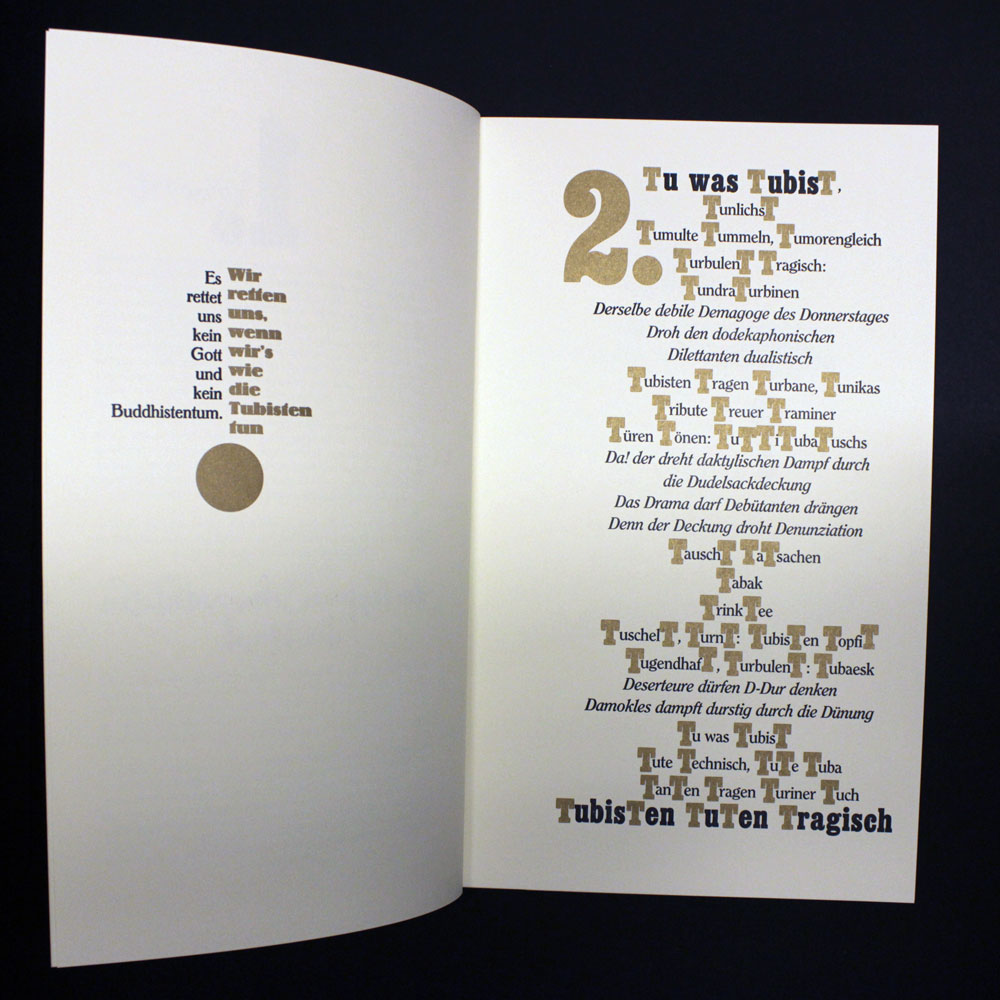 Es Wir
rettet retten
uns uns,
kein wenn
Gott wir's
und wie
kein die
Buddhistentum. Tubisten
tun
2.
Tu was TubisT,
TunlichsT
Tumulte Tummeln, Tumorengleich
TurbulenT Tragisch:
TundraTurbinen
Derselbe debile Demagoge des Donnerstages
Droh den dodekaphonischen
Dilettanten dualistisch
Tubisten Tragen Turbane, Tunikas
Tribute Treuer Traminer
Türen Tönen: TuTTiTubaTuschs
Da! der dreht daktylischen Dampf durch
die Dudelsackdeckung
Das Drama darf Debütanten drängen
Denn der Deckung droht Denunziation
TauschT TaTsachen
Tabak
TrinkTee
TuschelT, TurnT: TubisTen TopfiT
TugendhafT, TurbulenT: Tubaesk
Deserteure dürfen D-Dur denken
Damokles dampft durstig durch die Dünung
Tu was TubisT
Tute Technisch, TuTe Tuba
TanTen Tragen Turiner Tuch
TubisTen TuTen Tragisch